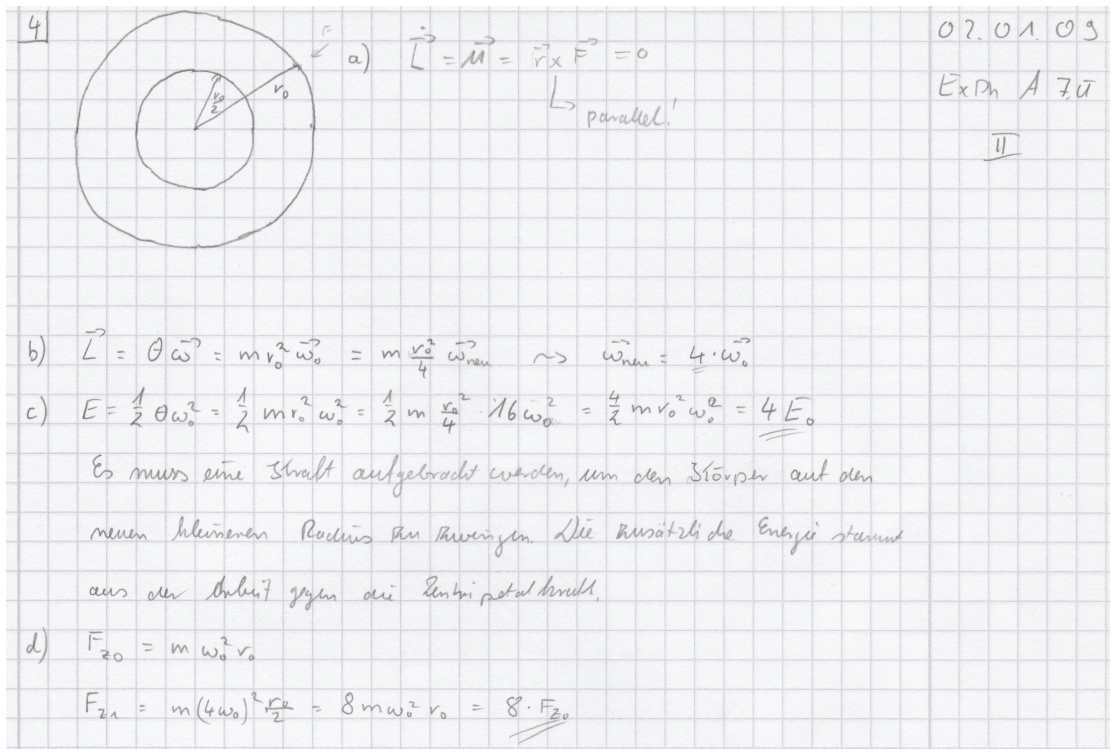 4
02.01.09
ExPh A 7.Ü
II
F
r₀
r₀/2
a) L⃗̇ = M⃗ = r⃗ × F⃗ = 0
↳ parallel!
b) L⃗ = Θ ω⃗ = m r₀² ω⃗₀ = m r₀²/4 ω⃗neu ⤳ ω⃗neu = 4 · ω⃗₀
c) E = 1/2 Θ ω₀² = 1/2 m r₀² ω₀² = 1/2 m r₀²/4 · 16 ω₀² = 4/2 m r₀² ω₀² = 4 E₀
Es muss eine Kraft aufgebracht werden, um den Körper auf den
neuen kleineren Radius zu zwingen. Die zusätzliche Energie stammt
aus der Arbeit gegen die Zentripetalkraft.
d) F_z0 = m ω₀² r₀
F_z1 = m (4ω₀)² r₀/2 = 8 m ω₀² r₀ = 8 · F_z0